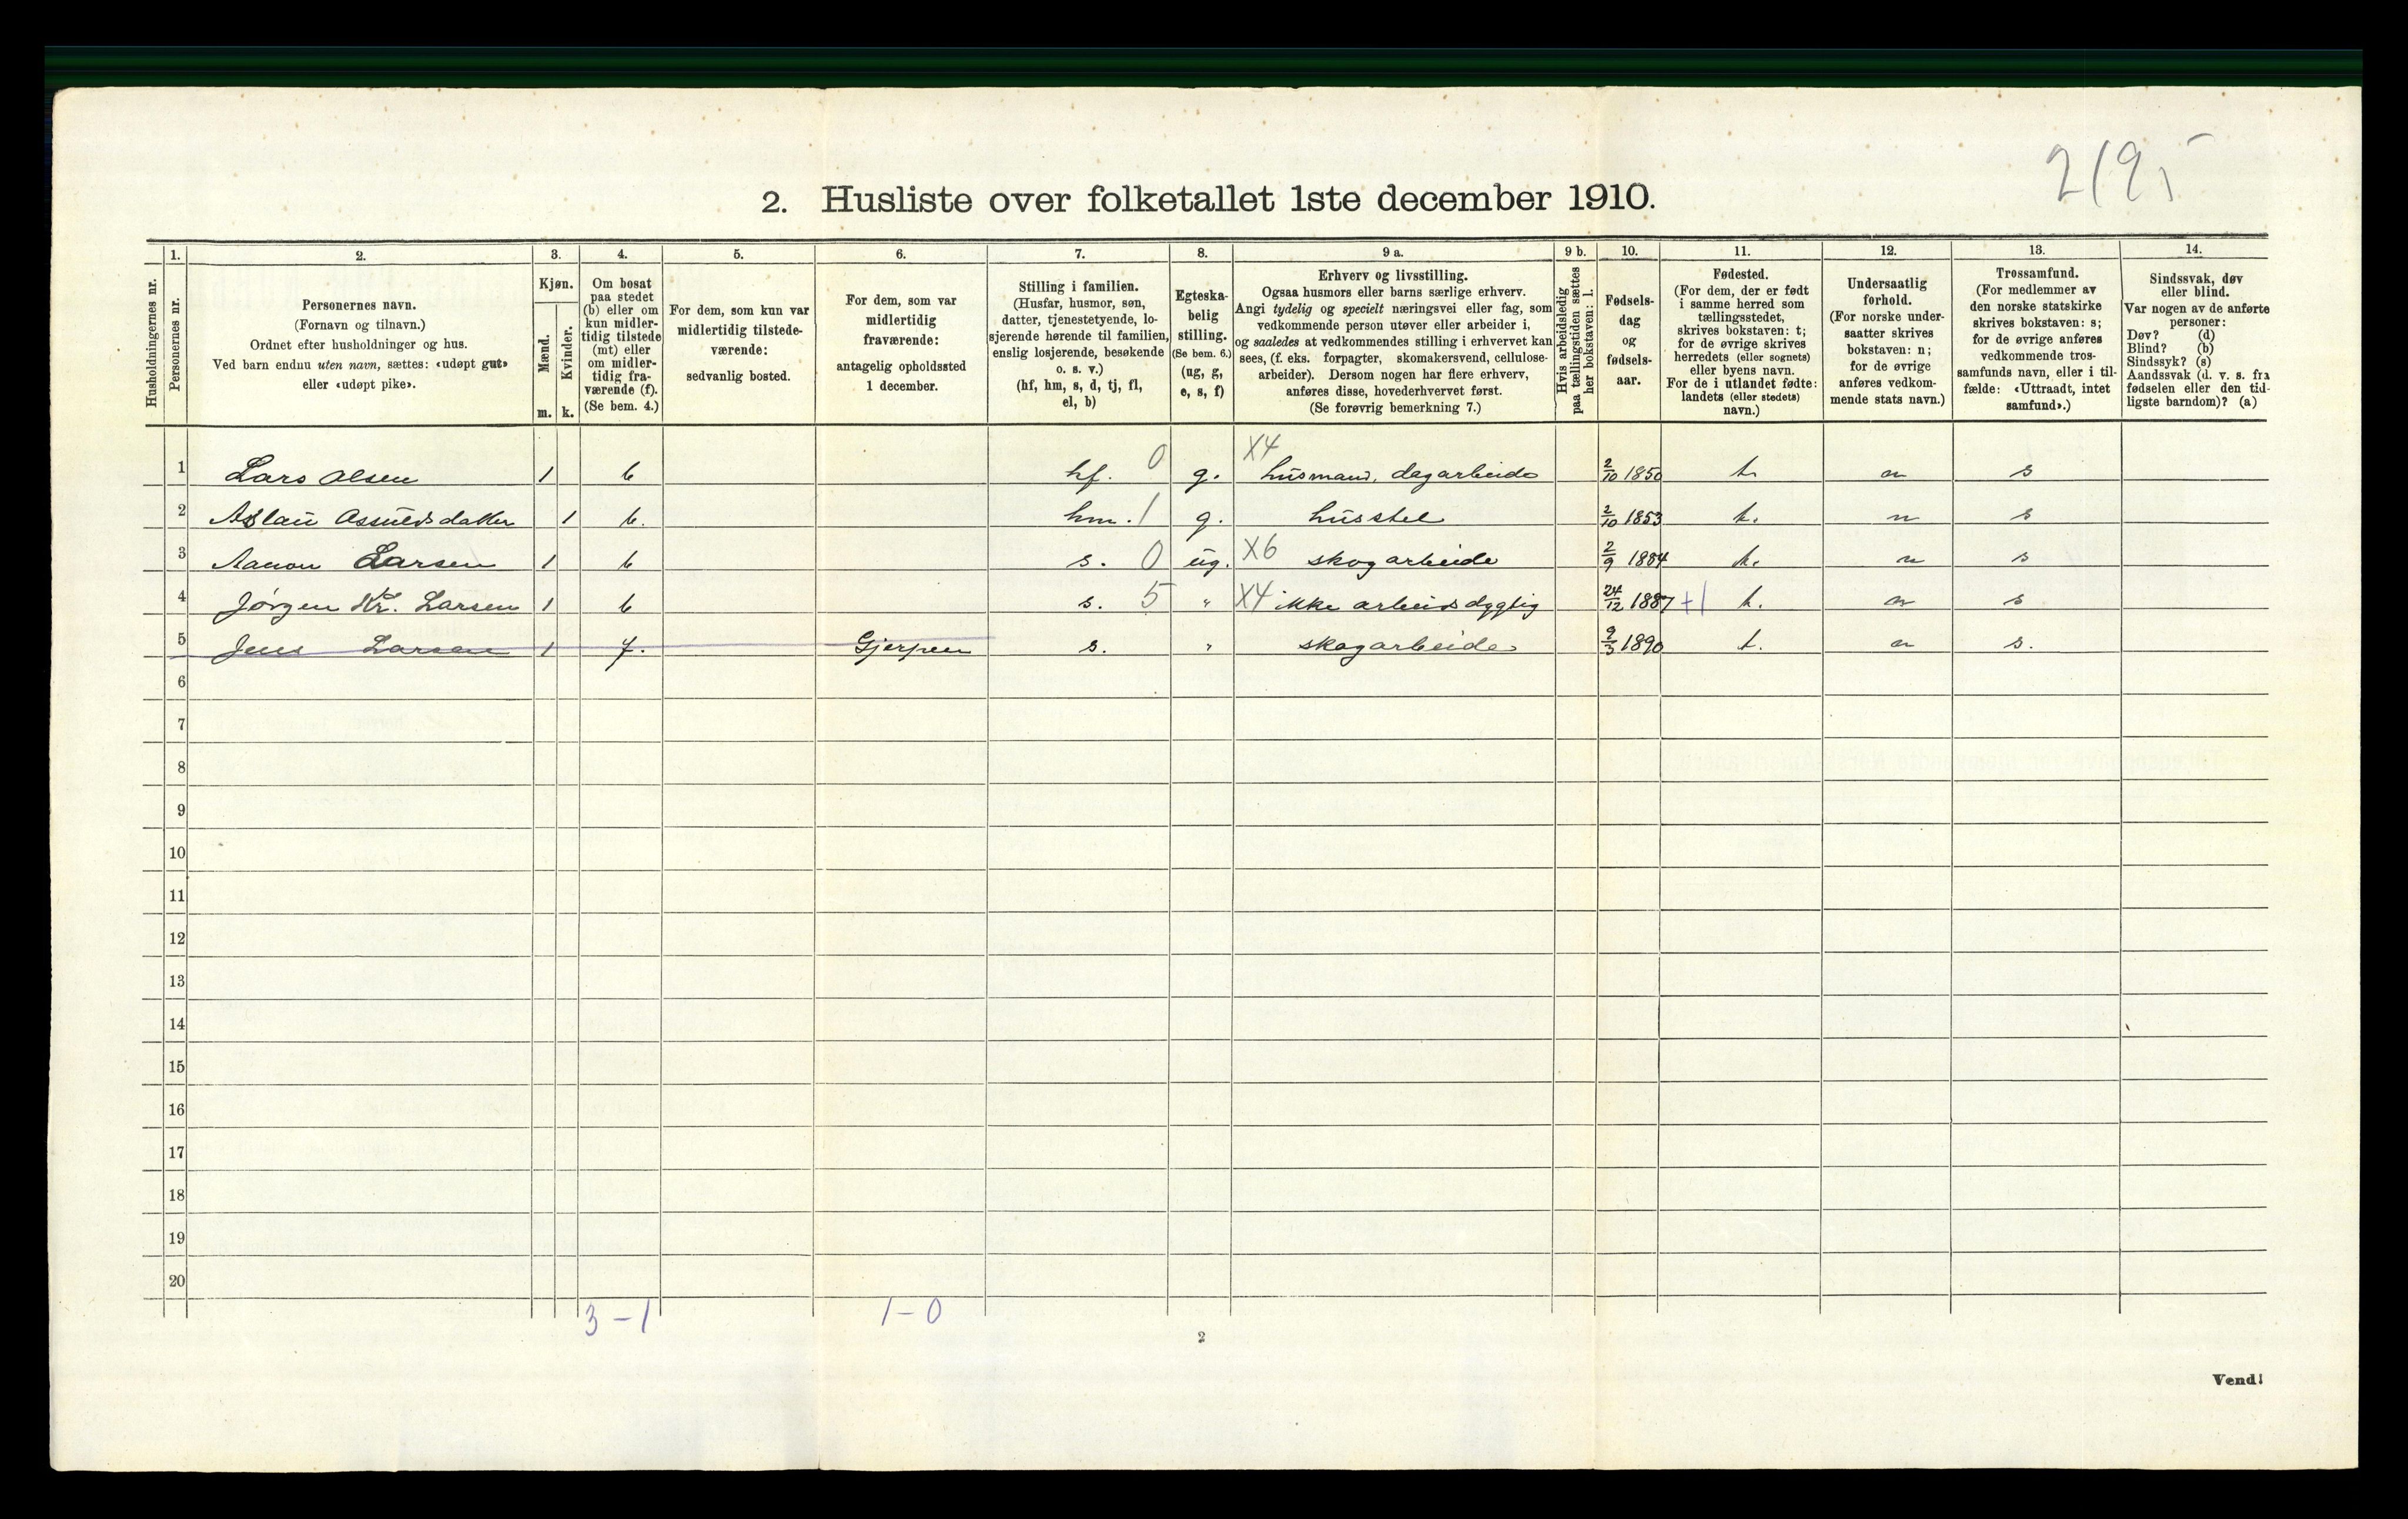 2. Husliste over folketallet 1ste december 1910.
Husholdningernes nr.
1.
Personernes nr.
2.
Personernes navn.
(Fornavn og tilnavn.)
Ordnet efter husholdninger og hus.
Ved barn endnu uten navn, sættes: «udøpt gut»
eller «udøpt pike».
3.
Kjøn.
Mænd.
Kvinder.
m. k.
4.
Om bosat
paa stedet
(b) eller om
kun midler-
tidig tilstede
(mt) eller
om midler-
tidig fra-
værende (f).
(Se bem. 4.)
5.
For dem, som kun var
midlertidig tilstede-
værende:
sedvanlig bosted.
6.
For dem, som var
midlertidig
fraværende:
antagelig opholdssted
1 december.
7.
Stilling i familien.
(Husfar, husmor, søn,
datter, tjenestetyende, lo-
sjerende hørende til familien,
enslig losjerende, besøkende
o. s. v.)
(hf, hm, s, d, tj, fl,
el, b)
8.
Egteska-
belig
stilling.
(Se bem. 6.)
(ug, g,
e, s, f)
9 a.
Erhverv og livsstilling.
Ogsaa husmors eller barns særlige erhverv.
Angi tydelig og specielt næringsvei eller fag, som
vedkommende person utøver eller arbeider i,
og saaledes at vedkommendes stilling i erhvervet kan
sees, (f. eks. forpagter, skomakersvend, cellulose-
arbeider). Dersom nogen har flere erhverv,
anføres disse, hovederhvervet først.
(Se forøvrig bemerkning 7.)
9 b.
Hvis arbeidsledig
paa tællingstiden sættes
her bokstaven: l.
10.
Fødsels-
dag
og
fødsels-
aar.
11.
Fødested.
(For dem, der er født
i samme herred som
tællingsstedet,
skrives bokstaven: t;
for de øvrige skrives
herredets (eller sognets)
eller byens navn.
For de i utlandet fødte:
landets (eller stedets)
navn.)
12.
Undersaatlig
forhold.
(For norske under-
saatter skrives
bokstaven: n;
for de øvrige
anføres vedkom-
mende stats navn.)
13.
Trossamfund.
(For medlemmer av
den norske statskirke
skrives bokstaven: s;
for de øvrige anføres
vedkommende tros-
samfunds navn, eller i til-
fælde: «Uttraadt, intet
samfund».)
14.
Sindssvak, døv
eller blind.
Var nogen av de anførte
personer:
Døv? (d)
Blind? (b)
Sindssyk? (s)
Aandssvak (d. v. s. fra
fødselen eller den tid-
ligste barndom)? (a)
1 Lars Olsen 1 b hf. 0 g. X4 husmand, dagarbeide 2/10 1850 t n s
2 Aslau Assuldsdatter 1 b. hm. 1 g. husstel 2/10 1853 t. n s
3 Aanon Larsen 1 b s. 0 ug. X6 skogarbeide 2/9 1884 t. n s
4 Jørgen Kr. Larsen 1 b s. 5 " X4 ikke arbeidsdygtig 24/12 1887 +1 t. n s
5 Jens Larsen 1 f. Gjerpen s. " skogarbeide 9/3 1890 t. n s.
6
7
8
9
10
11
12
13
14
15
16
17
18
19
20
3 – 1 1 – 0
2
Vend!